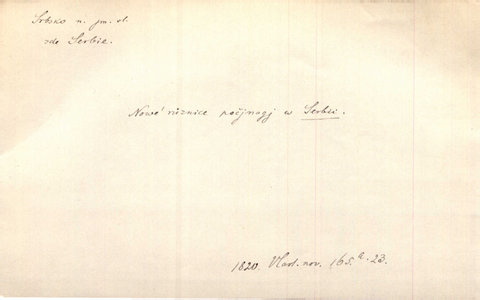 Srbsko n. jm. vl.
zde Serbie.
Nowé různice počjnagj w Serbii.
1820. Vlast. nov. 165.a.23.